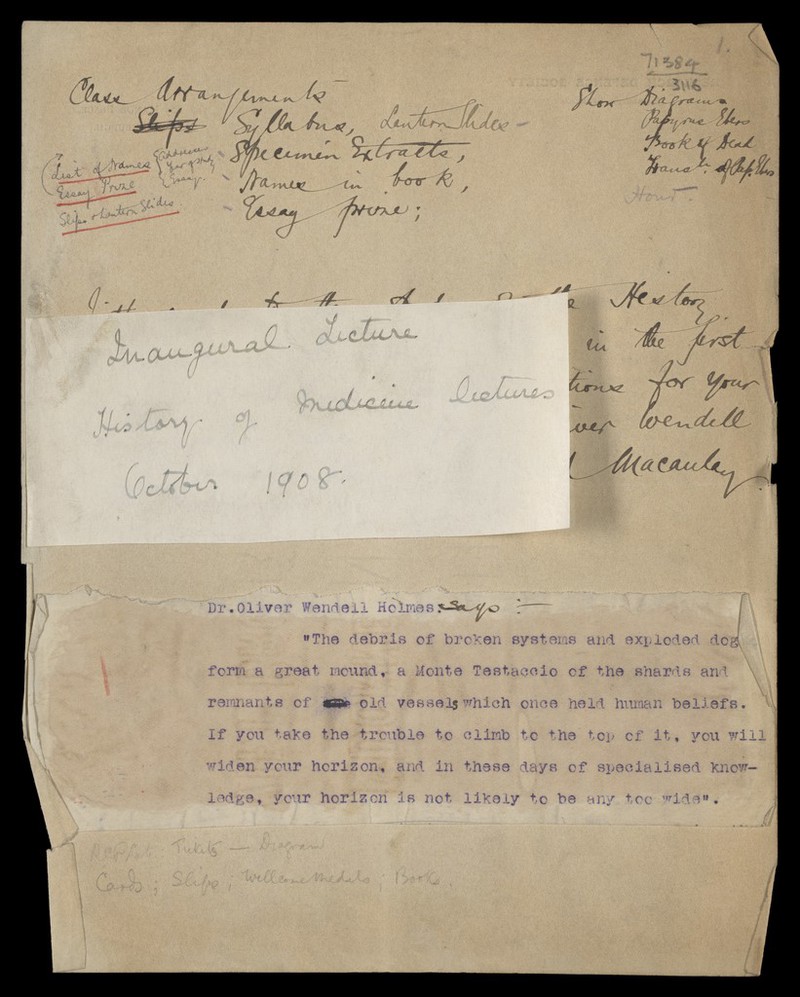 1.
71384
3116
Class Arrangements
Slips Syllabus, Lantern Slides -
Specimen Extracts,
Names in book,
Essay prize;
Show Diagrams
Papyrus Ebers
Book of Dead
of Pap. Ebers
List of Names
Essay Prize
Slips & Lantern Slides
History
in the first
tions for your
ver Wendell
Macaulay.
Inaugural Lecture
History of Medicine lectures
October 1908.
Dr.Oliver Wendell Holmes says :—
"The debris of broken systems and exploded dog
form a great mound, a Monte Testaccio of the shards and
remnants of old vessels which once held human beliefs.
If you take the trouble to climb to the top of it, you will
widen your horizon, and in these days of specialised know-
ledge, your horizon is not likely to be any too wide".
Tickets — Diagram
Cards ; Slips ; Wellcome Medals ; Books.